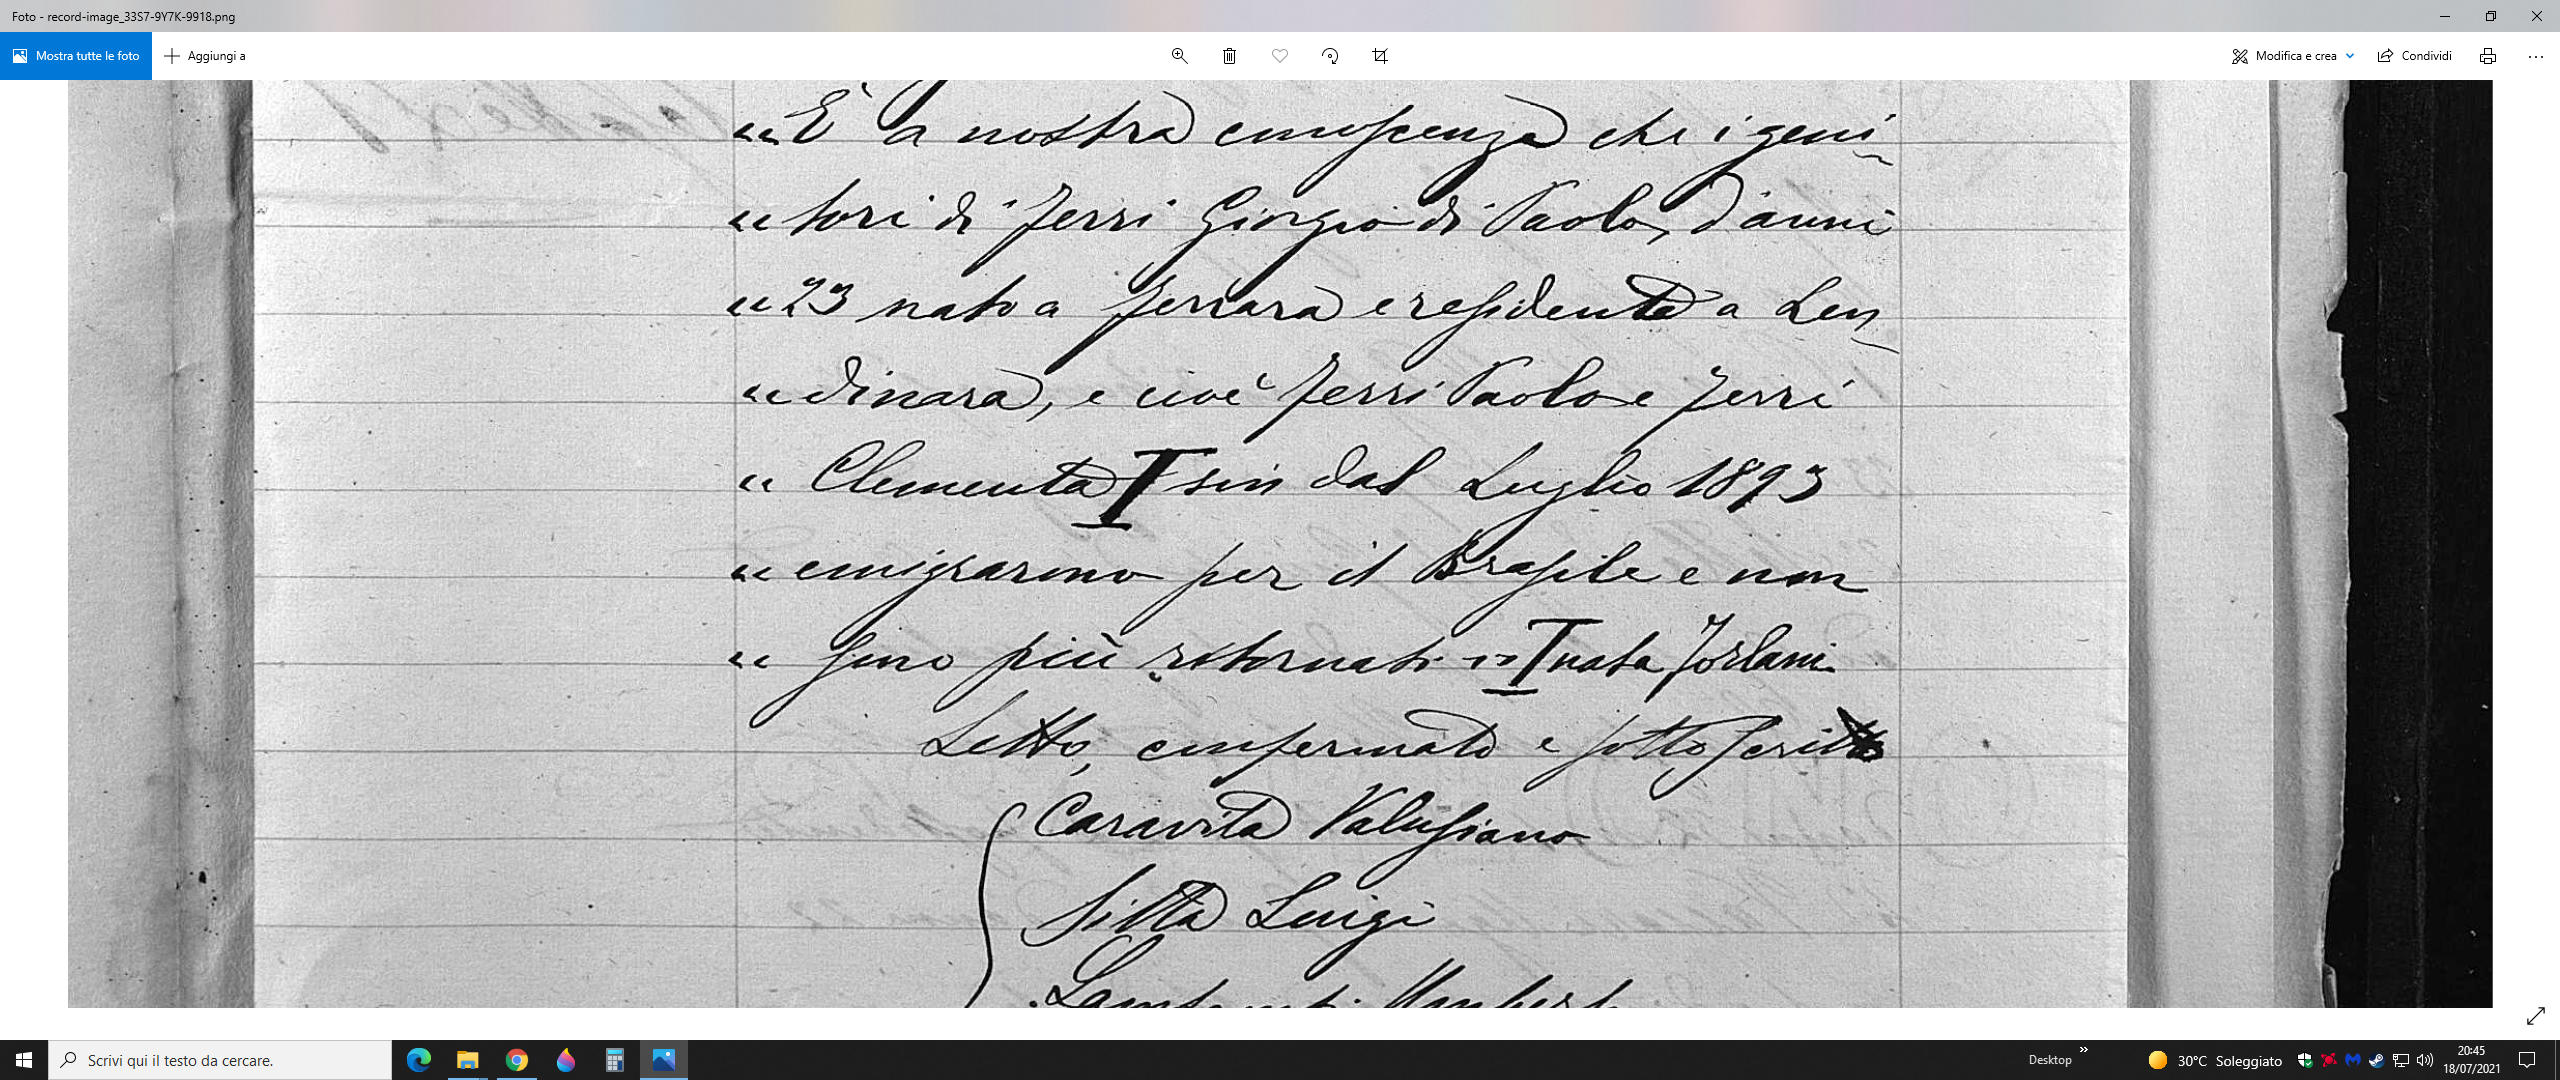 Foto - record-image_33S7-9Y7K-9918.png
Mostra tutte le foto
Aggiungi a
Modifica e crea
Condividi
"È a nostra conoscenza che i geni
" tori di Ferri Giorgio di Paolo, d'anni
" 23 nato a Ferrara e residente a Len
" dinara, e cioè Ferri Paolo e Ferri
" Clementa T sin dal Luglio 1893
" emigrarono per il Brasile e non
" sono più ritornati = T nata Forlani
Letto, confermato e sottoscritto
Caravita Valusiano
Sitta Luigi
Scrivi qui il testo da cercare.
Desktop
»
30°C Soleggiato
20:45
18/07/2021